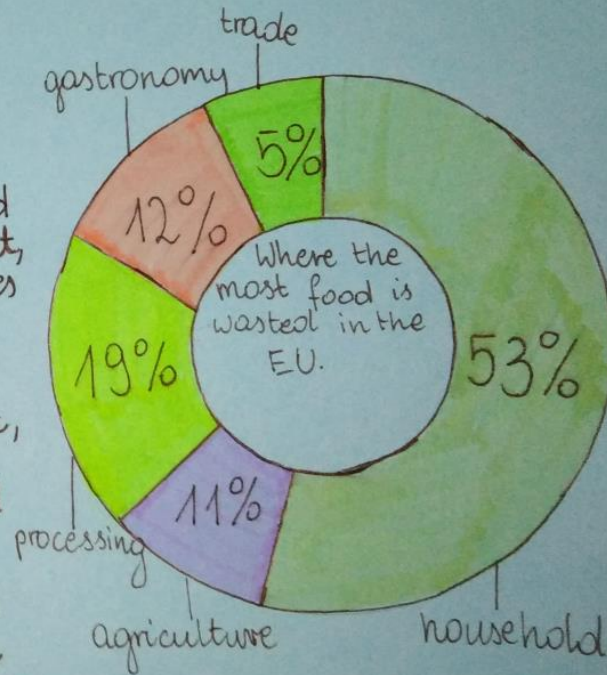 trade
gastronomy
5%
12%
Where the
most food is
wasted in the
EU.
53%
19%
11%
processing
agriculture
household